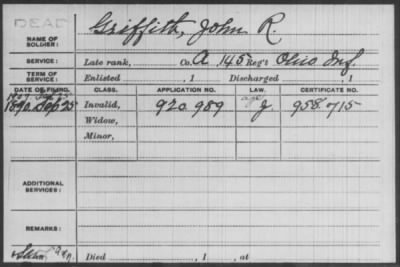 DEAD
NAME OF SOLDIER: Griffith, John R.
SERVICE: Late rank, Co. A, 145 Reg't Ohio Inf.
TERM OF SERVICE: Enlisted , 1 Discharged , 1
DATE OF FILING. CLASS. APPLICATION NO. LAW. CERTIFICATE NO.
1890. Sep 25 Invalid, 920.989 J 958.715
Widow,
Minor,
ADDITIONAL SERVICES:
REMARKS:
Died , 1 , at